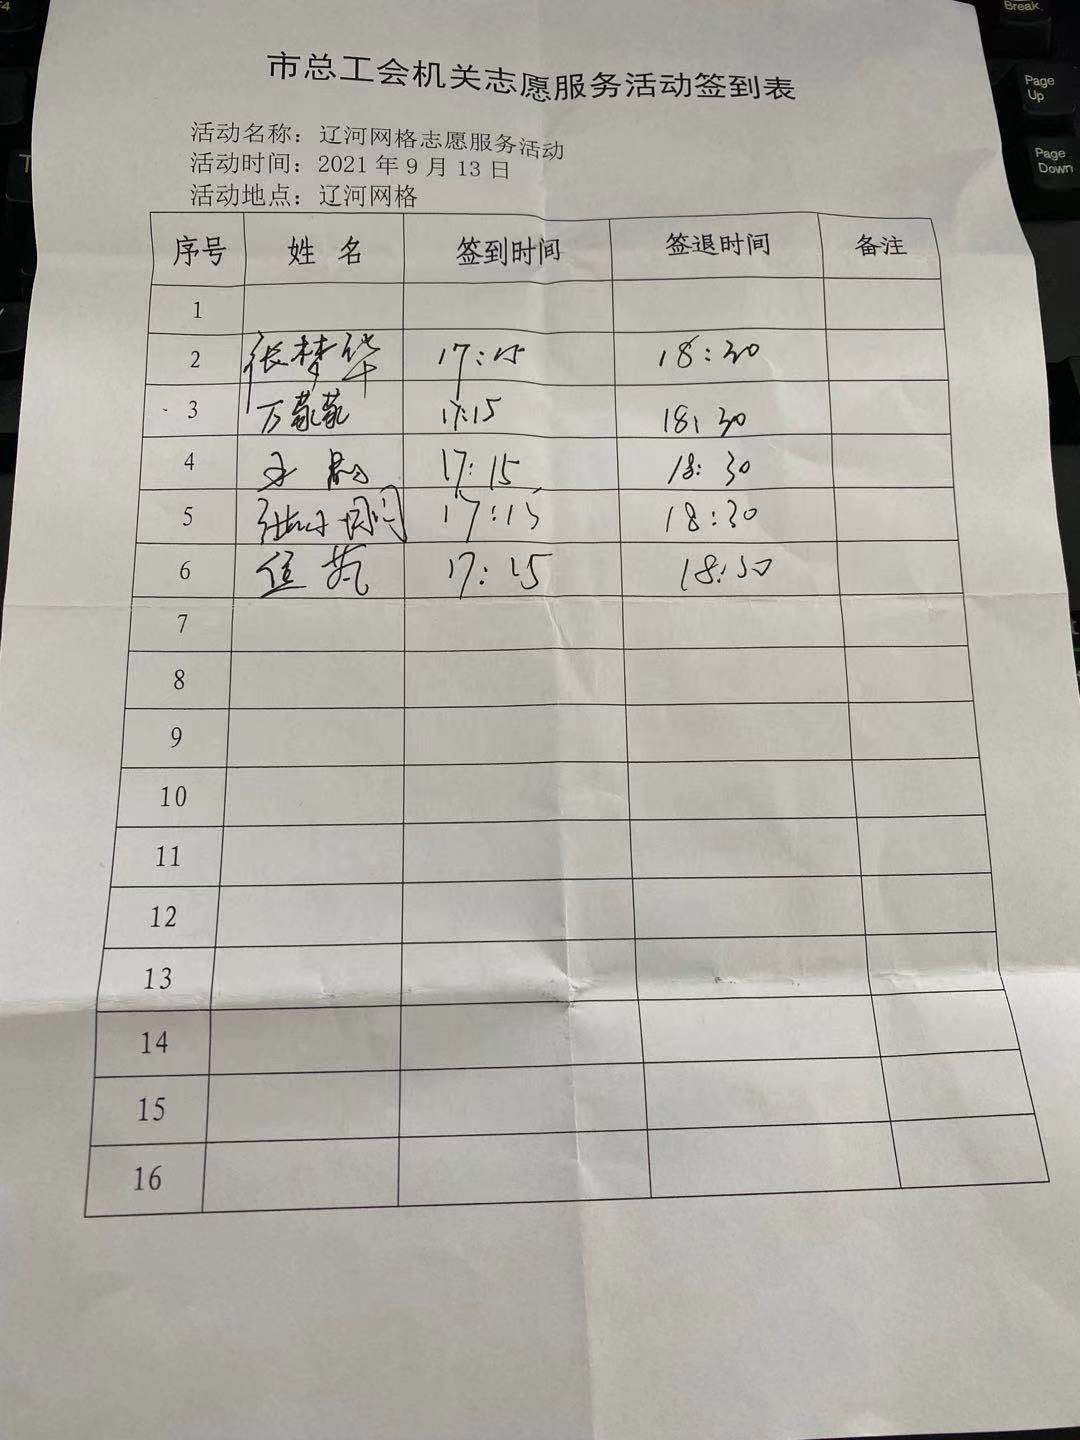 市总工会机关志愿服务活动签到表
活动名称：辽河网格志愿服务活动
活动时间：2021 年 9 月 13 日
活动地点：辽河网格
序号 姓 名 签到时间 签退时间 备注
1
2 张梦华 17:15 18:30
3 万蒙蒙 17:15 18:30
4 17:15 18:30
5 17:15 18:30
6 17:15 18:30
7
8
9
10
11
12
13
14
15
16
Break
Page Up
Page Down